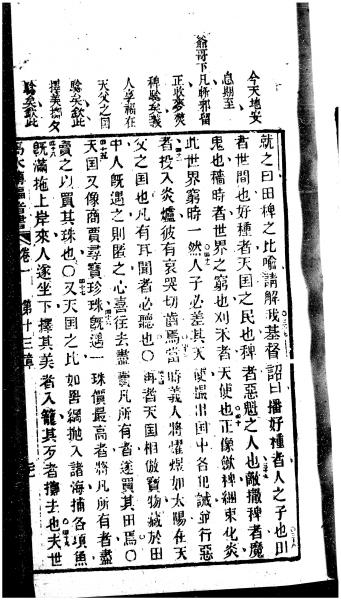 今天地安
息期至
爺哥下凡斬邪留
正收麥焚
稗驗矣義
人享福在
天父之囯
驗矣欽此
擇美揀歹
驗矣欽此
就之曰田稗之比喻請解我基督詔曰播好種者人之子也田
者世間也好種者天囯之民也稗者惡魁之人也敵撒稗者魔
鬼也穡時者世界之窮也刈禾者天使也正像斂稗綑束化炎
此世界窮時一然人子必差其天使攝出囯中各犯誡並行惡
者投入炎爐彼有哀哭切齒焉當時義人將耀煌如太陽在天
父之囯也凡有耳聞者必聽也〇再者天囯相倣寶物藏於田
中人旣遇之則匿之心喜往去盡賣凡所有者遂買其田焉〇
天囯又像商賈尋寶珍珠旣遇一珠價最高者將凡所有者盡
賣之以買其珠也〇又天囯之比如罟網拋入諸海捕各項魚
旣滿拖上岸來人遂坐下擇其美者入籠其歹者擲去也夫世
馬太傳福音書 卷一 第十三章